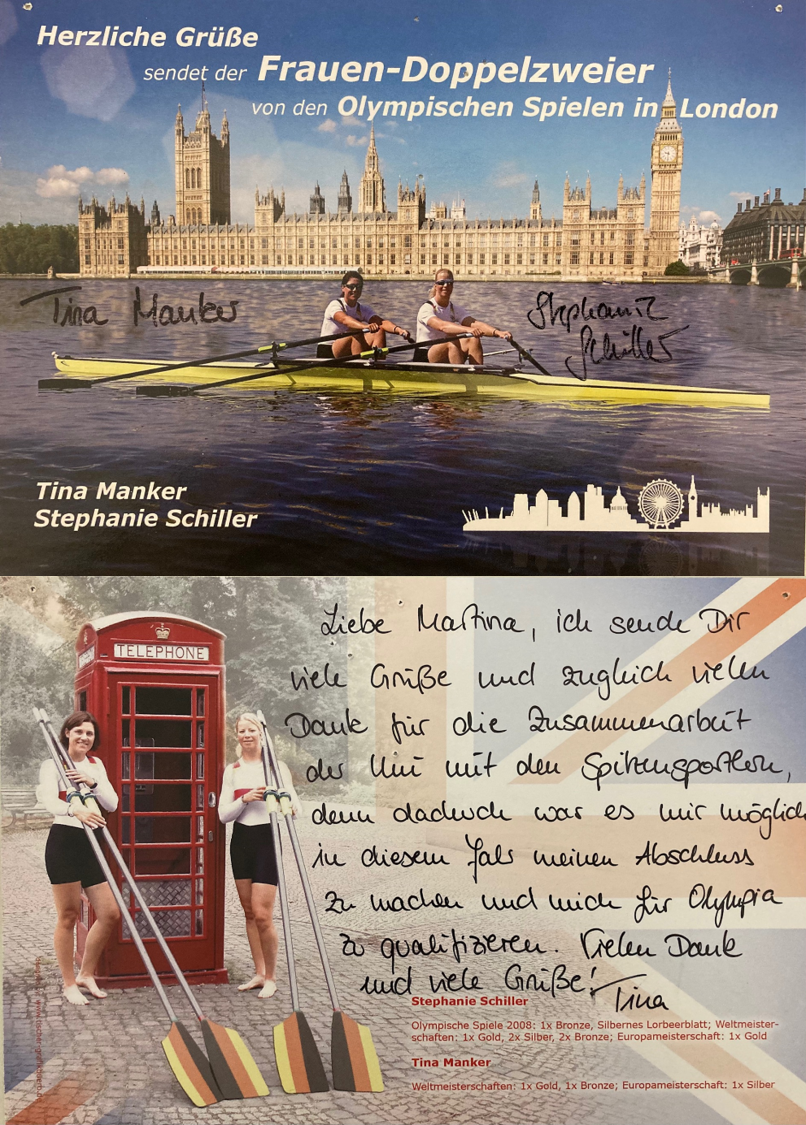 Herzliche Grüße
sendet der Frauen-Doppelzweier
von den Olympischen Spielen in London
Tina Manker
Stephanie
Schiller
Tina Manker
Stephanie Schiller
TELEPHONE
Liebe Martina, ich sende Dir
viele Grüße und zugleich vielen
Dank für die Zusammenarbeit
der Uni mit den Spitzensportlern,
denn dadurch war es mir möglich
in diesem Jahr meinen Abschluss
zu machen und mich für Olympia
zu qualifizieren. Vielen Dank
und viele Grüße! Tina
Stephanie Schiller
Olympische Spiele 2008: 1x Bronze, Silbernes Lorbeerblatt; Weltmeister-
schaften: 1x Gold, 2x Silber, 2x Bronze; Europameisterschaft: 1x Gold
Tina Manker
Weltmeisterschaften: 1x Gold, 1x Bronze; Europameisterschaft: 1x Silber